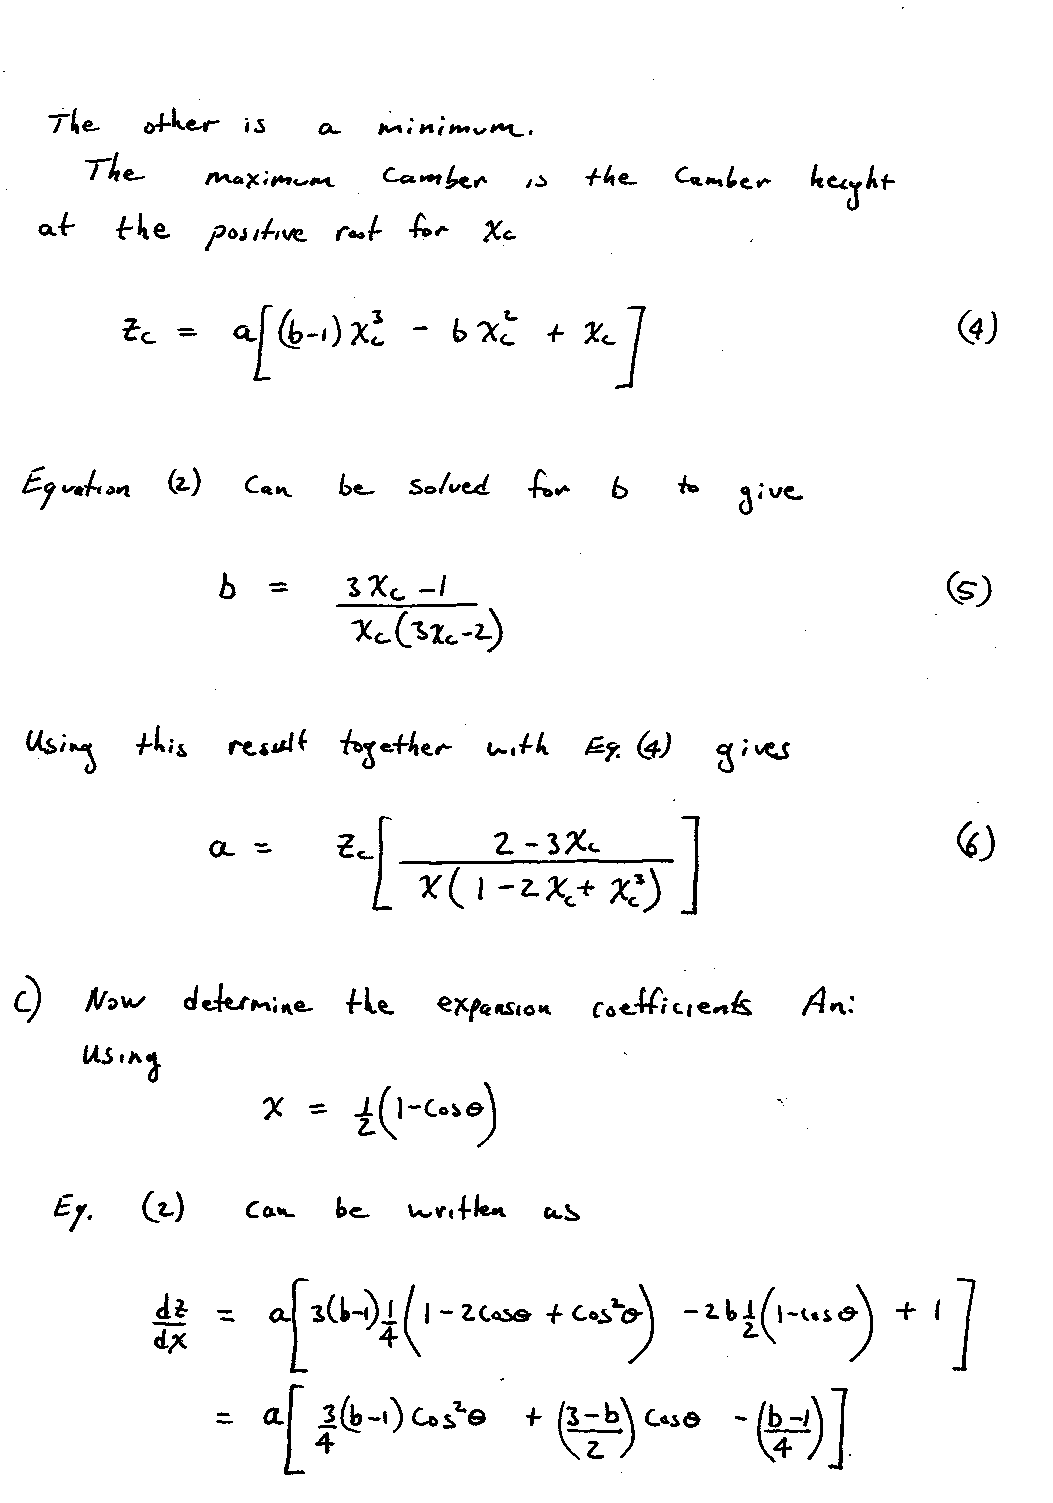 The other is a minimum.
The maximum camber is the camber height
at the positive root for x_c
z_c = a[(b-1)x_c^3 - b x_c^2 + x_c] (4)
Equation (2) can be solved for b to give
b = (3x_c - 1) / (x_c(3x_c - 2)) (5)
Using this result together with Eq. (4) gives
a = z_c[(2 - 3x_c) / (x(1 - 2x_c + x_c^3))] (6)
c) Now determine the expansion coefficients An:
Using
x = 1/2(1 - cosθ)
Eq. (2) can be written as
dz/dx = a[3(b-1)1/4(1 - 2cosθ + cos^2θ) - 2b1/2(1 - cosθ) + 1]
= a[3/4(b-1)cos^2θ + ((3-b)/2)cosθ - ((b-1)/4)]